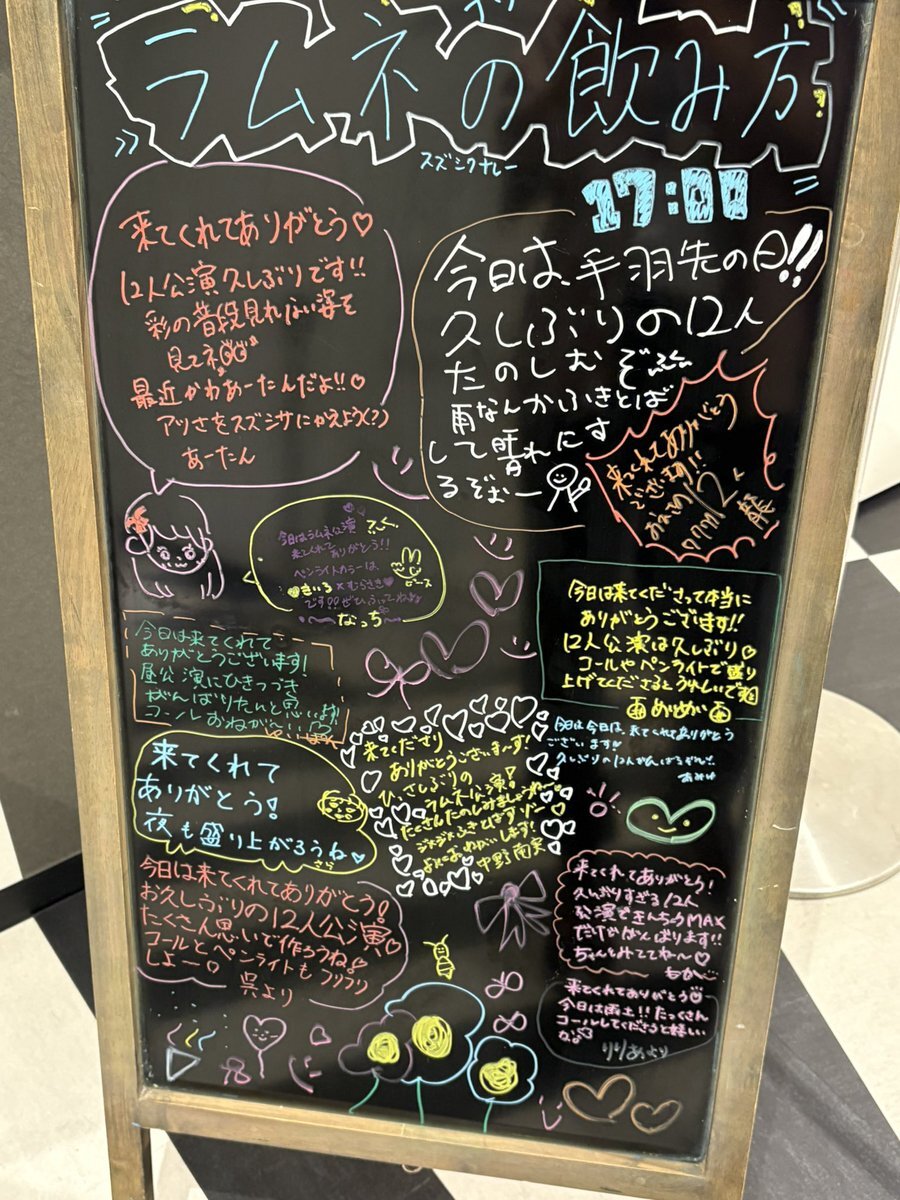 ラムネの飲み方
スズシクナレー
17:00
来てくれてありがとう♡
12人公演久しぶりです!!
彩の普段見れない姿を
見てネ
最近かわあーたんだよ!!♡
アツさをスズシサにかえよう(?)
あーたん
今日は、手羽先の日!!
久しぶりの12人
たのしむぞぉ
雨なんかふきとば
して晴れにす
るぞぉー
来てくれてありがとう
ございます!!
12人
今日はラムネ公演
来てくれてありがとう!!
ペンライトカラーは、
きいろ×むらさき
です!!ぜひふってねっ
なっち
ピース
今日は来てくださって本当に
ありがとうございます!!
12人公演は久しぶり♡
コールやペンライトで盛り
上げてくださるとうれしいです
めいめい
今日は来てくれて
ありがとうございます!
昼公演にひきつづき
がんばりたいと思います!
コールおねがい
今日は来てくれてありがとう
ございます
久しぶりの12人がんばるぞー!
来てくれて
ありがとう!
夜も盛り上がろうね♥
さら
来てくださり
ありがとうございまーす!
ひっさしぶりの
ラムネ公演!
たくさんたのしみましょうね
ジメジメふきとばすゾー
よろしくおねがいします!
中野南実
今日は来てくれてありがとう!
お久しぶりの12人公演♡
たくさん思いで作ろうね!
コールとペンライトもフリフリ
しよー♡
呉より
来てくれてありがとう!
久しぶりすぎる12人
公演できんちょうMAX
だけどがんばります!!
ちゃんとみててね〜♡
もか
来てくれてありがとう♡
今日は雨土!!たっくさん
コールしてくださると嬉しい
な♡
りりあより